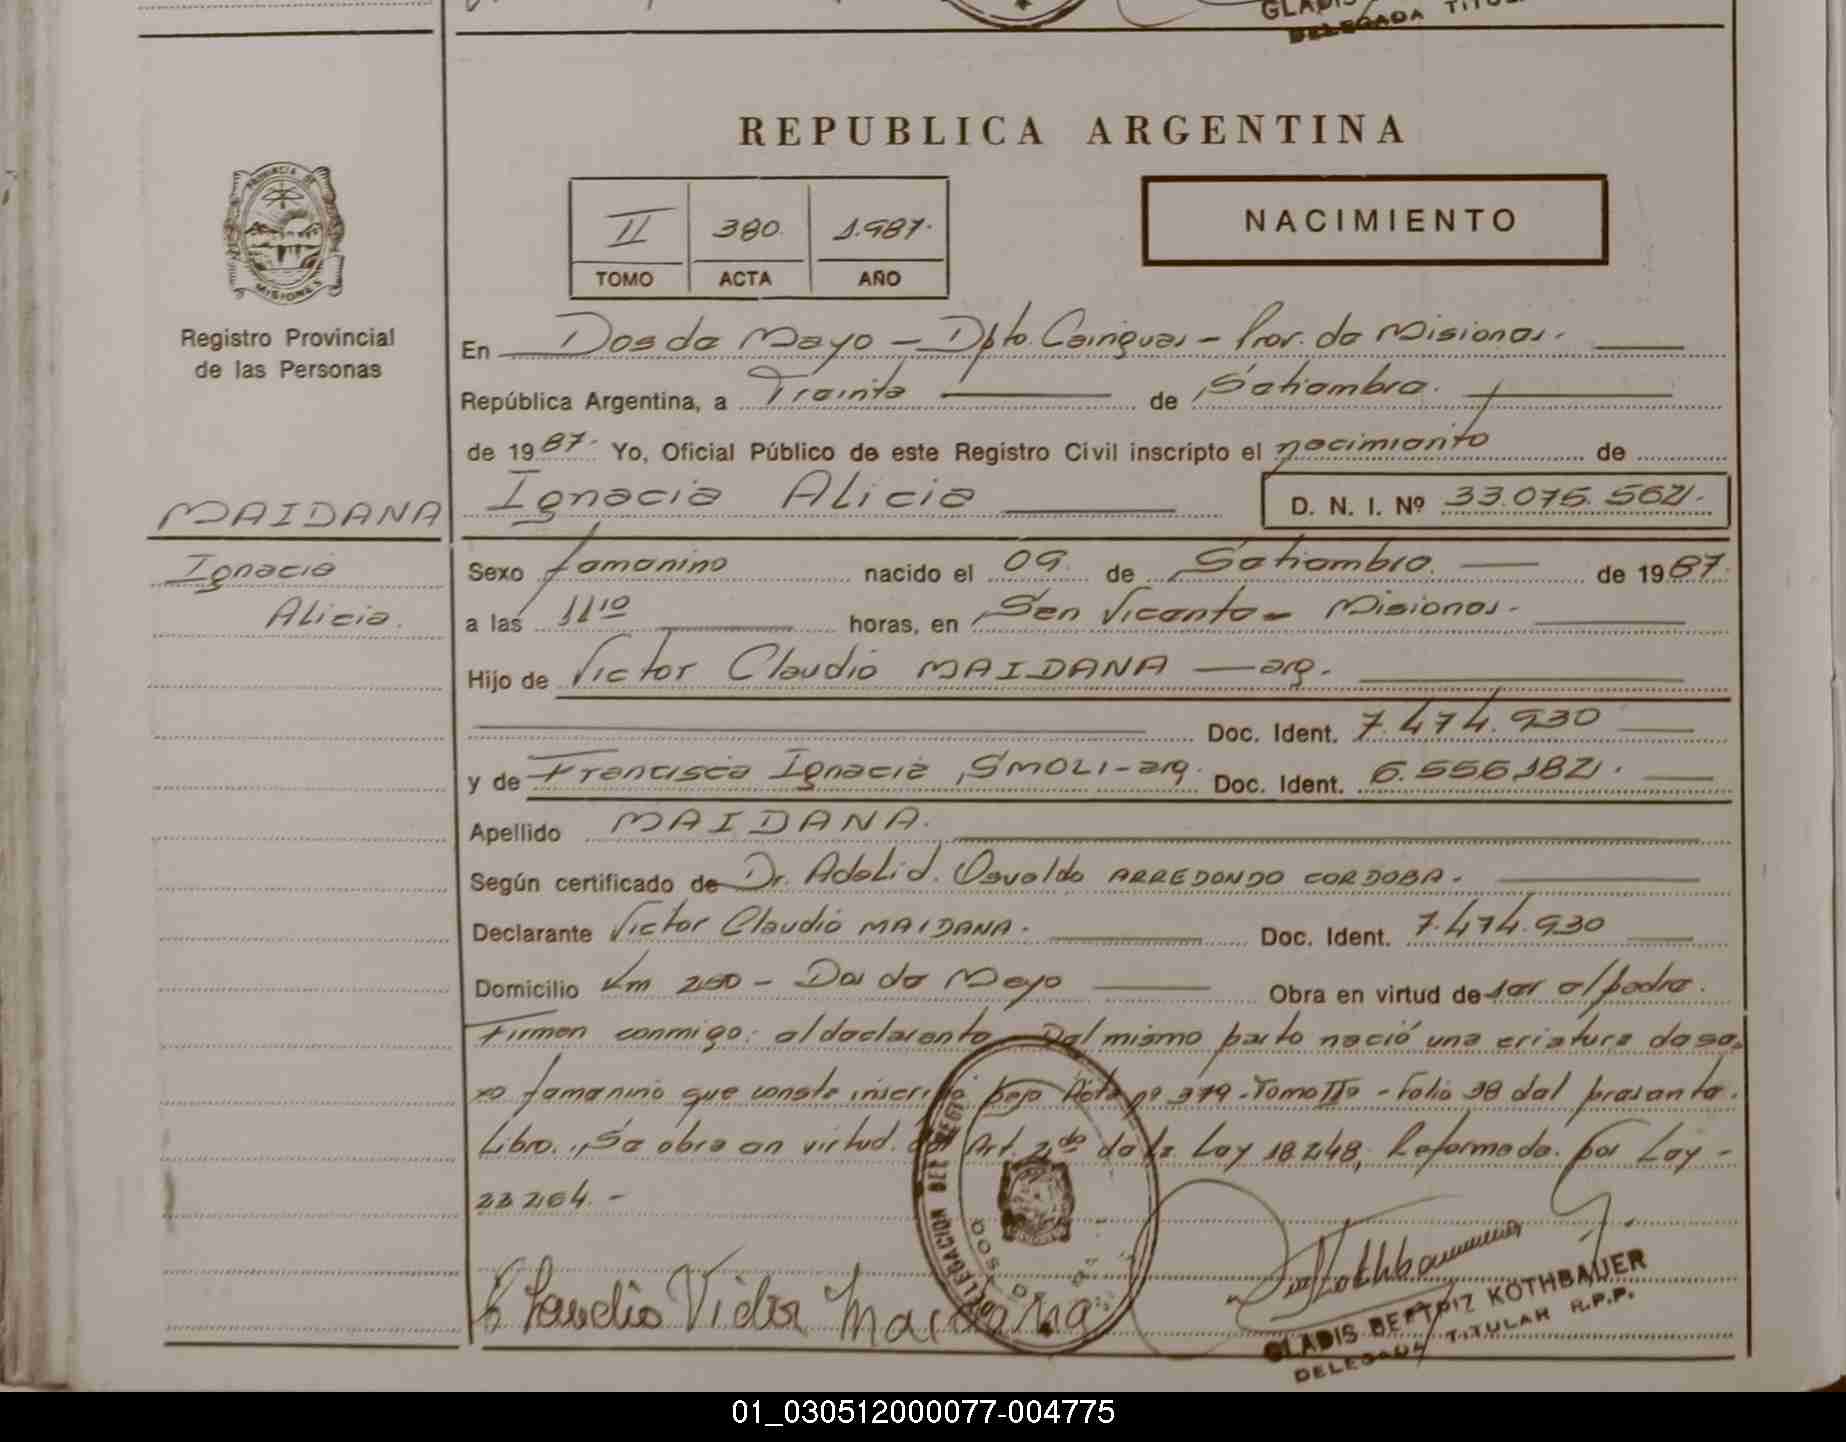 GLADIS
DELEGADA TITUL
REPUBLICA ARGENTINA
PROVINCIA DE
MISIONES
II 380. 1.987.
TOMO ACTA AÑO
NACIMIENTO
Registro Provincial
de las Personas
En Dos de Mayo - Dpto. Cainguas - Prov. de Misiones.
República Argentina, a Treinta de Setiembre.
de 1987. Yo, Oficial Público de este Registro Civil inscripto el nacimiento de
MAIDANA Ignacia Alicia D. N. I. Nº 33.076.562.
Ignacia
Alicia.
Sexo femenino nacido el 09. de Setiembre. de 1987.
a las 11 10 horas, en San Vicente - Misiones.
Hijo de Victor Claudio MAIDANA - arg.
Doc. Ident. 7.474.930
y de Francisca Ignacia SMOLI - arg. Doc. Ident. 6.556.182.
Apellido MAIDANA.
Según certificado de Dr. Adelid. Osvaldo ARREDONDO CORDOBA.
Declarante Victor Claudio MAIDANA. Doc. Ident. 7.474.930
Domicilio Km 250 - Dos de Mayo Obra en virtud de ser el padre.
Firman conmigo: el declarante Del mismo parto nació una criatura de se
xo femenino que consta inscripta bajo Acta nº 379 - Tomo IIº - Folio 38 del presente.
Libro. Se obra en virtud. del Art. 2do de la Ley 18.248, Reformada. por Ley -
23264. -
DELEGACION DEL REGIS
DOS
Claudio Victor Maidana
GLADIS BEATRIZ KOTHBAUER
DELEGADA TITULAR R.P.P.
01_030512000077-004775